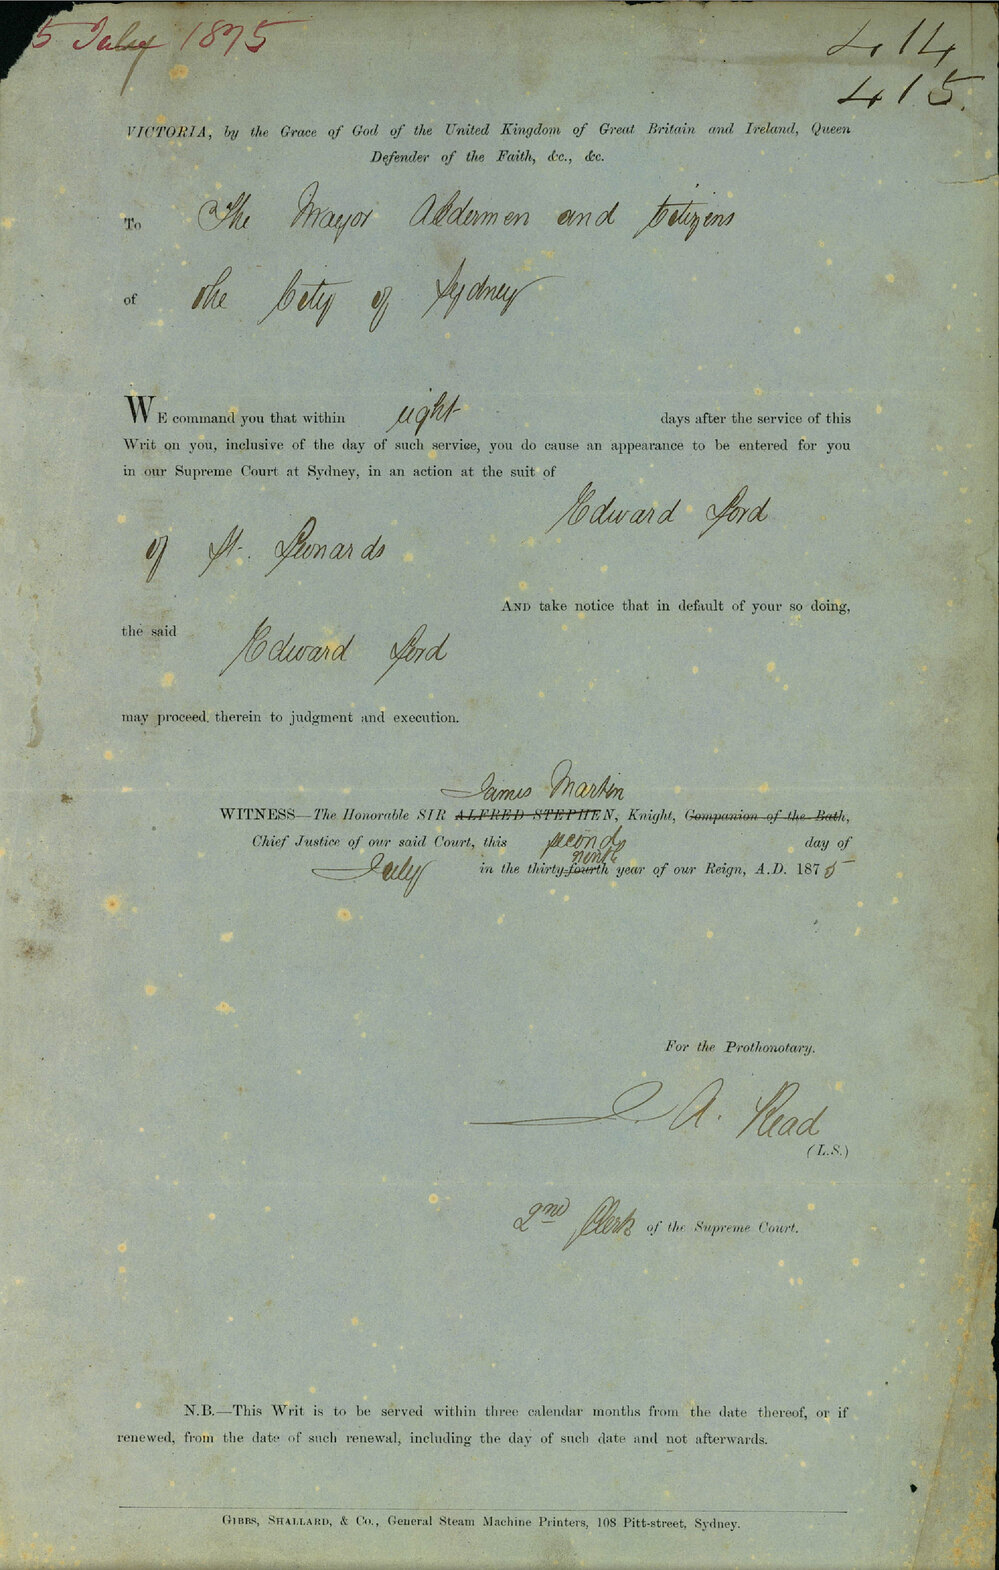 5 July 1875
414
415.
VICTORIA, by the Grace of God of the United Kingdom of Great Britain and Ireland, Queen
Defender of the Faith, &c., &c.
To The Mayor Aldermen and Citizens
of the City of Sydney
WE command you that within eight days after the service of this
Writ on you, inclusive of the day of such service, you do cause an appearance to be entered for you
in our Supreme Court at Sydney, in an action at the suit of
Edward Lord
of St. Leonards
AND take notice that in default of your so doing,
the said Edward Lord
may proceed therein to judgment and execution.
James Martin
WITNESS—The Honorable SIR ALFRED STEPHEN, Knight, Companion of the Bath,
Chief Justice of our said Court, this second day of
ninth
July in the thirty-fourth year of our Reign, A.D. 1875
For the Prothonotary.
A. Read
(L.S.)
2nd Clerk of the Supreme Court.
N.B.—This Writ is to be served within three calendar months from the date thereof, or if
renewed, from the date of such renewal, including the day of such date and not afterwards.
GIBBS, SHALLARD, & Co., General Steam Machine Printers, 108 Pitt-street, Sydney.